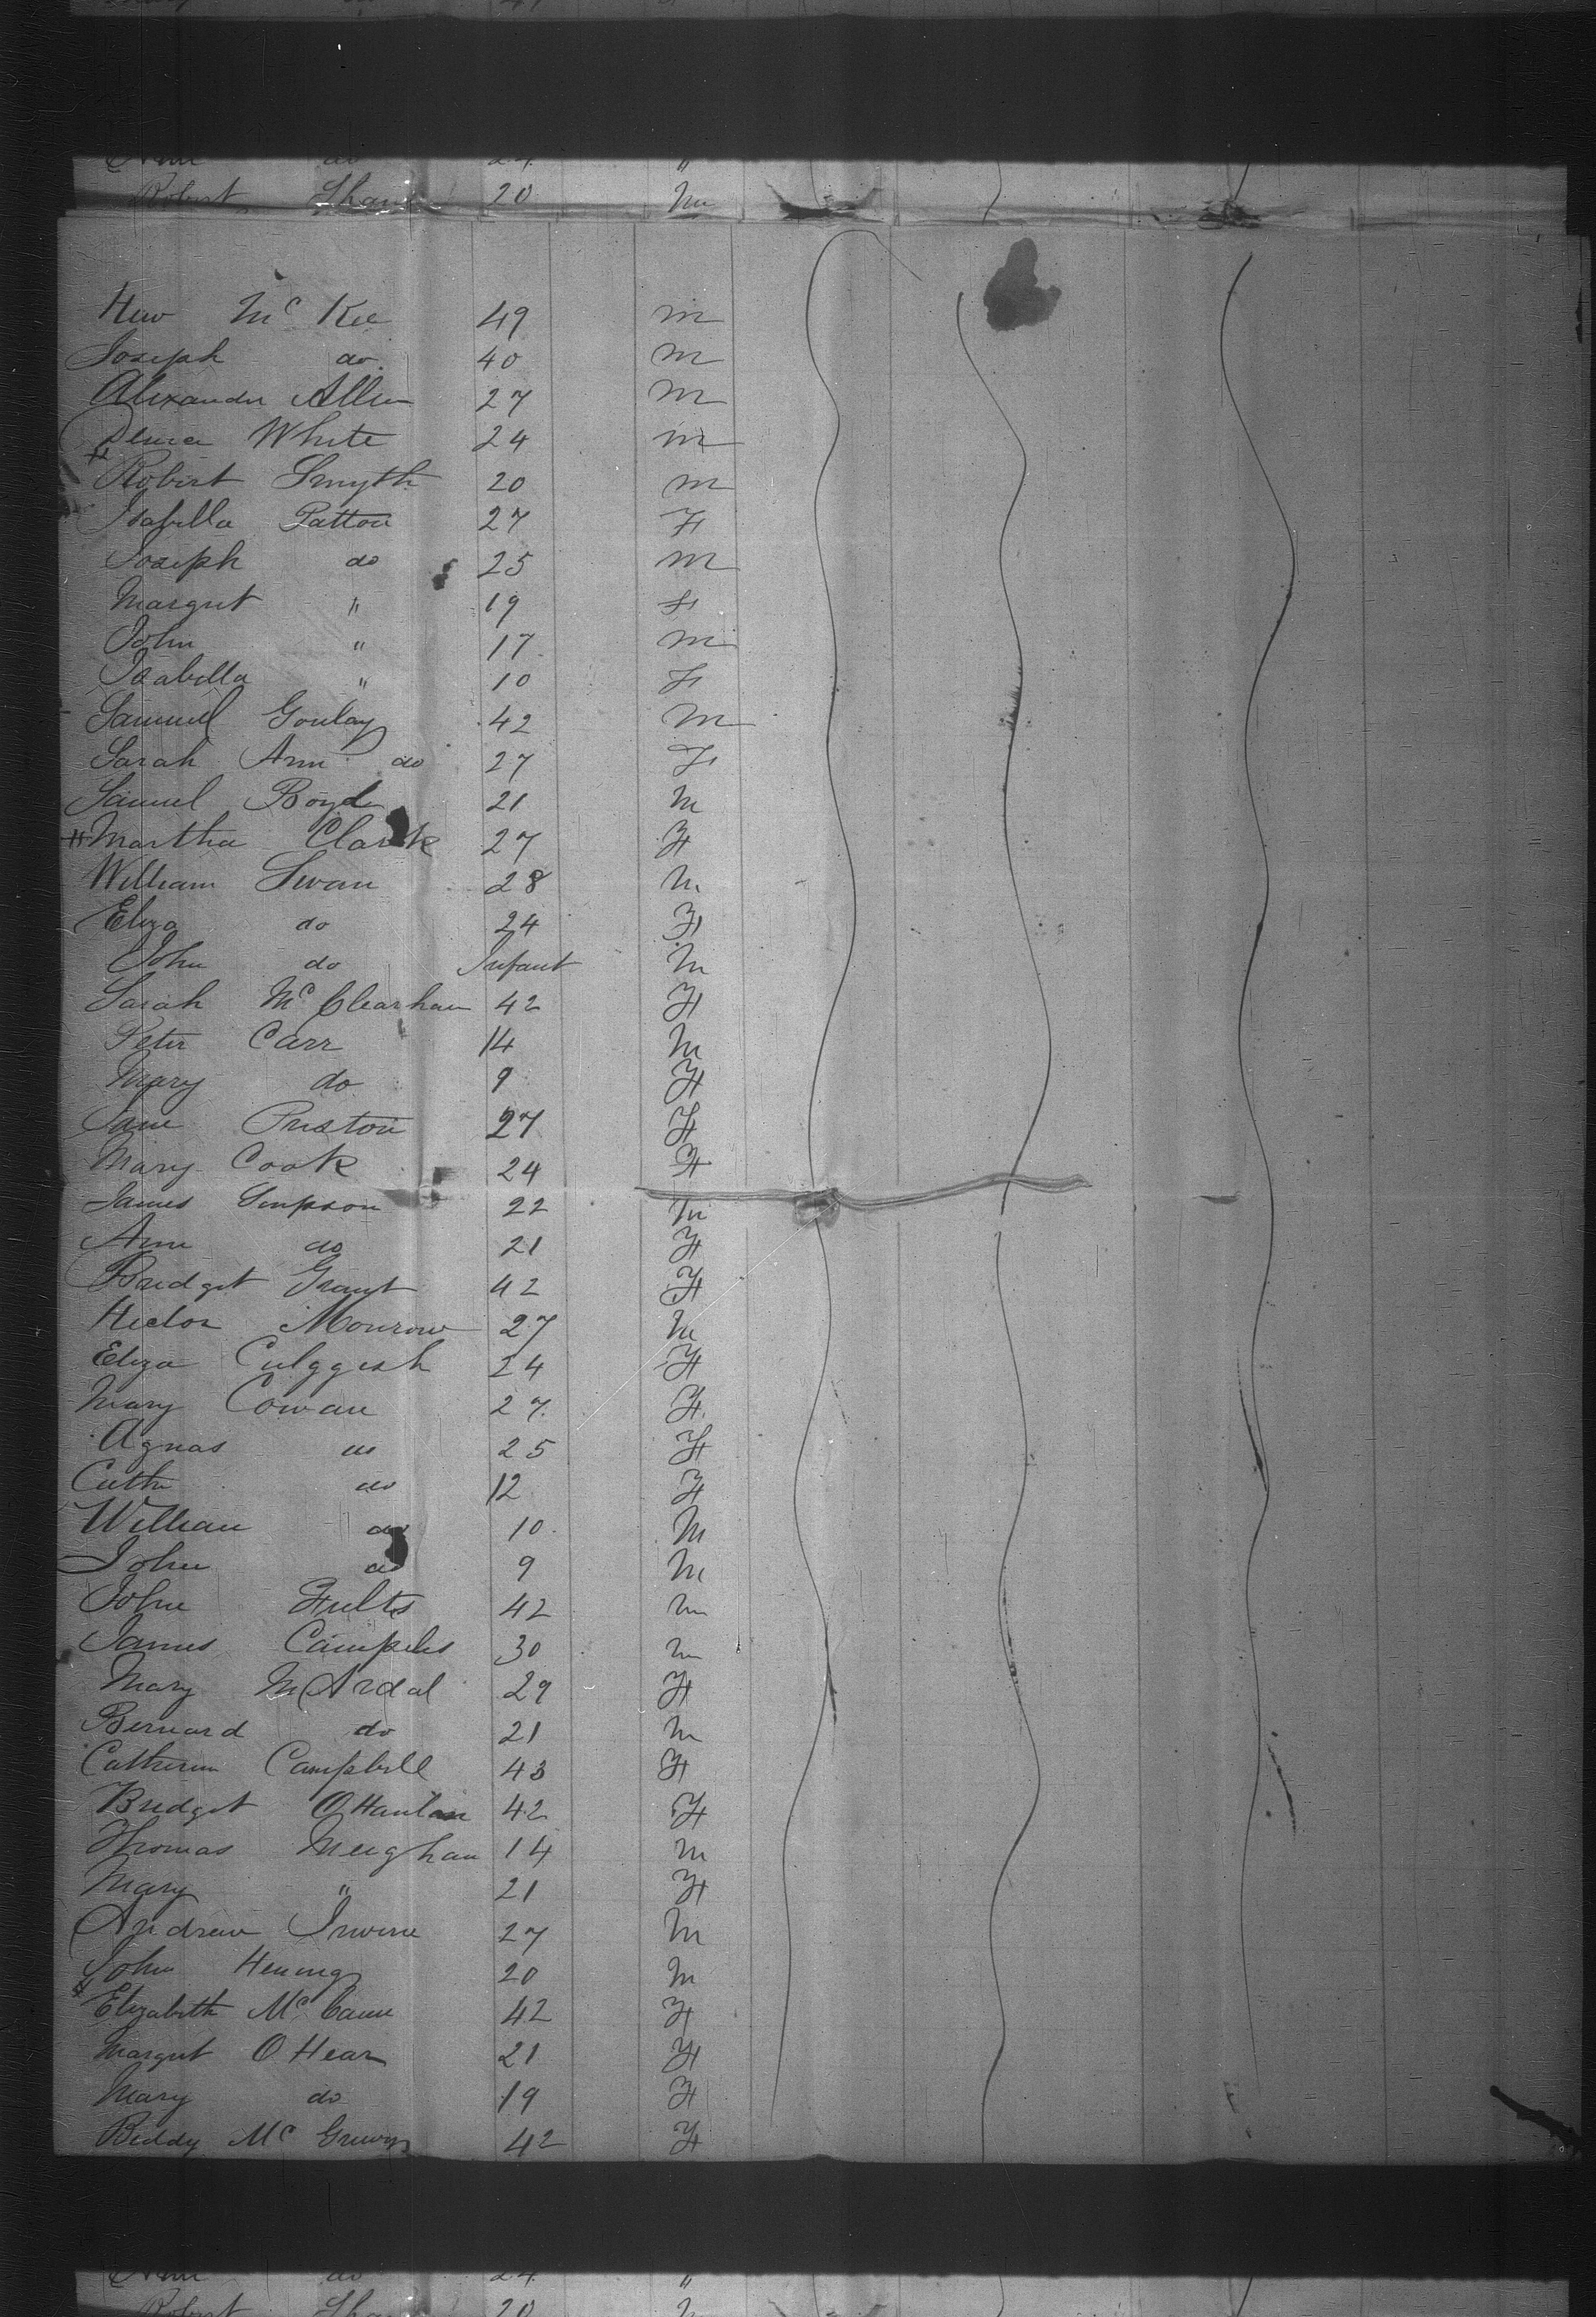 Ann do 24 "
Robert 20 m
Hew Mc Kee 49 m
Joseph do 40 m
Alexander Allen 27 m
White 24 m
Robert Smyth 20 m
Isabella Patton 27 F
Joseph do 25 m
Margret " 19 F
John " 17 m
Isabella " 10 F
Samuel Goulay 42 m
Sarah Ann do 27 F
Samuel Boyd 21 m
Martha Clark 27 F
William Swan 28 m
Eliza do 24 F
John do Infant m
Sarah 42 F
Peter Carr 14 m
Mary do 9 F
Jane Preston 27 F
Mary Cook 24 F
James Simpson 22 m
Ann do 21 F
Bridget Grant 42 F
Hector Monrow 27 m
Eliza 24 F
Mary Cowan 27 F
Agnas do 25 F
Cath do 12 F
William do 10 M
John do 9 m
John Fults 42 m
James 30 m
Mary McArdal 29 F
Bernard do 21 m
Catherin Campbell 43 F
Bridget OHanlan 42 F
Thomas Meighan 14 m
Mary " 21 F
Andrew Irvine 27 m
John Hening 20 m
Elizabeth Mc Cann 42 F
Margret O Hear 21 F
Mary do 19 F
Biddy Mc 42 F
Ann do 24 "
Robert 20